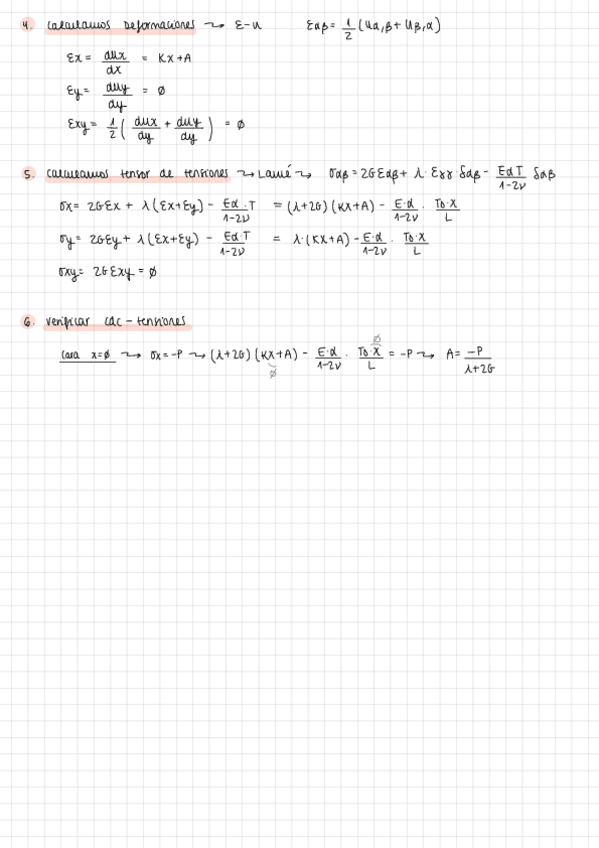 4. calculamos deformaciones ⤳ ε-u   εαβ = 1/2 (uα,β + uβ,α)
εx = dux/dx = Kx + A
εy = duy/dy = ∅
εxy = 1/2 ( dux/dy + duy/dy ) = ∅
5. calculamos tensor de tensiones ⤳ Lamé ⤳ σαβ = 2Gεαβ + λ · εγγ · δαβ - EαT/1-2ν δαβ
σx = 2Gεx + λ(εx+εy) - Eα·T/1-2ν = (λ+2G)(Kx+A) - E·α/1-2ν · To·x/L
σy = 2Gεy + λ(εx+εy) - Eα·T/1-2ν = λ·(Kx+A) - E·α/1-2ν · To·x/L
σxy = 2Gεxy = ∅
6. verificar cdc - tensiones
cara x=∅ ⤳ σx = -P ⤳ (λ+2G)(Kx+A) - E·α/1-2ν · To·x/L = -P ⤳ A = -P/λ+2G
∅
∅